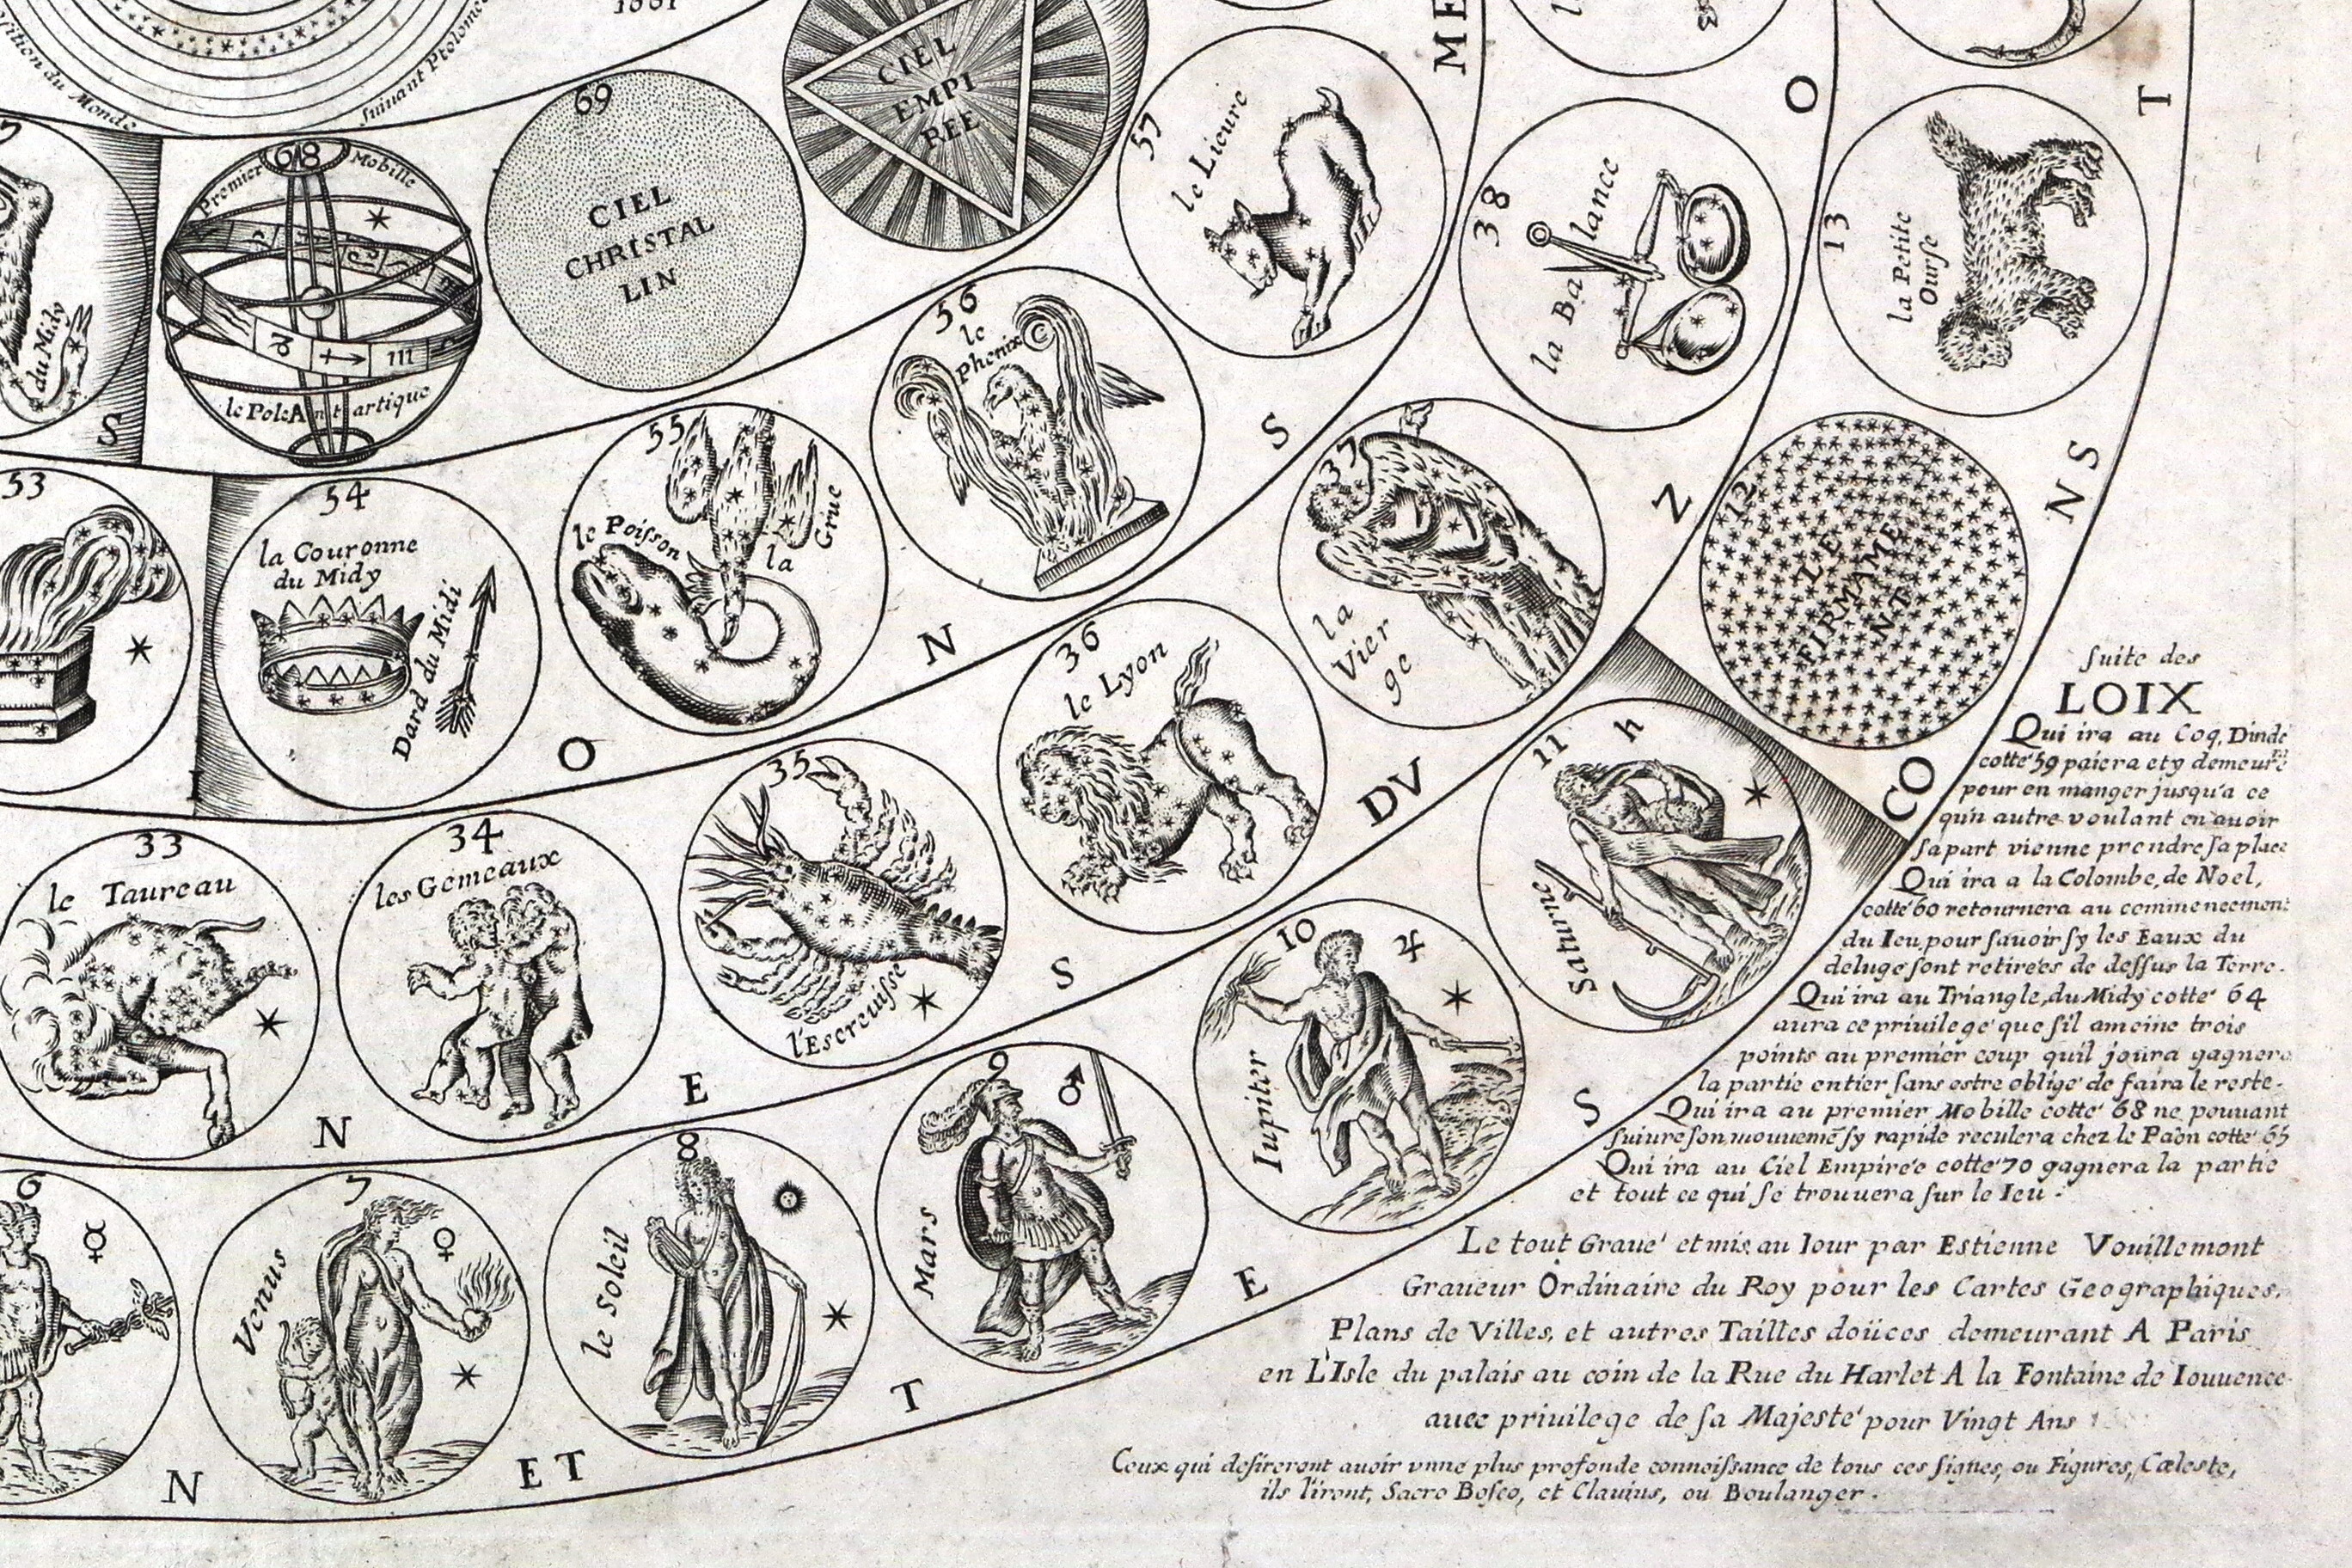 1661
suiuant Ptolomé
sition du Monde
CIEL
EMPI
REE
69
CIEL
CHRISTAL
LIN
68
Premier Mobille
le Pole Antartique
du Midy
57
le Lieure
38
la Balance
13
la Petite
Ourse
56
le
Phenix
55
le Poisson
la Grue
54
la Couronne
du Midy
Dard du Midi
53
37
la
Vier
ge
12
LE
FIRMAME
NT
36
le Lyon
35
l'Escreuisse
34
les Gemeaux
33
le Taureau
11
♄
Saturne
10
♃
Iupiter
9
♂
Mars
8
le Soleil
7
♀
Venus
6
☿
ME
O
T
S
S
Z
NS
I
O
N
DV
CO
N
E
S
S
N
ET
T
E
suite des
LOIX
Qui ira au Coq, Dinde
cotté 59 paiera et y demeure
pour en manger jusqu'a ce
qu'n autre voulant en auoir
sa part vienne prendre sa place
Qui ira a la Colombe, de Noel,
cotté 60 retournera au commencement
du Ieu, pour sauoir sy les Eaux du
deluge sont retireés de dessus la Terre.
Qui ira au Triangle, du Midy cotté 64
aura ce priuilege que s'il ameine trois
points au premier coup qu'il joura gagnera
la partie entier sans estre obligé de faira le reste.
Qui ira au premier Mobille cotté 68 ne pouuant
suiure son mouuemẽ sy rapide reculera chez le Paon cotté 65
Qui ira au Ciel Empireé cotté 70 gagnera la partie
et tout ce qui se trouuera sur le Ieu.
Le tout Graué et mis au Iour par Estienne Vouillemont
Graueur Ordinaire du Roy pour les Cartes Geographiques,
Plans de Villes, et autres Tailles doüces demeurant A Paris
en L'Isle du palais au coin de la Rue du Harlet A la Fontaine de Iouuence
auec priuilege de sa Majesté pour Vingt Ans
Ceux qui desireront auoir vnne plus profonde connoissance de tous ces signes, ou Figures, Cæleste,
ils liront, Sacro Bosco, et Clauius, ou Boulanger.